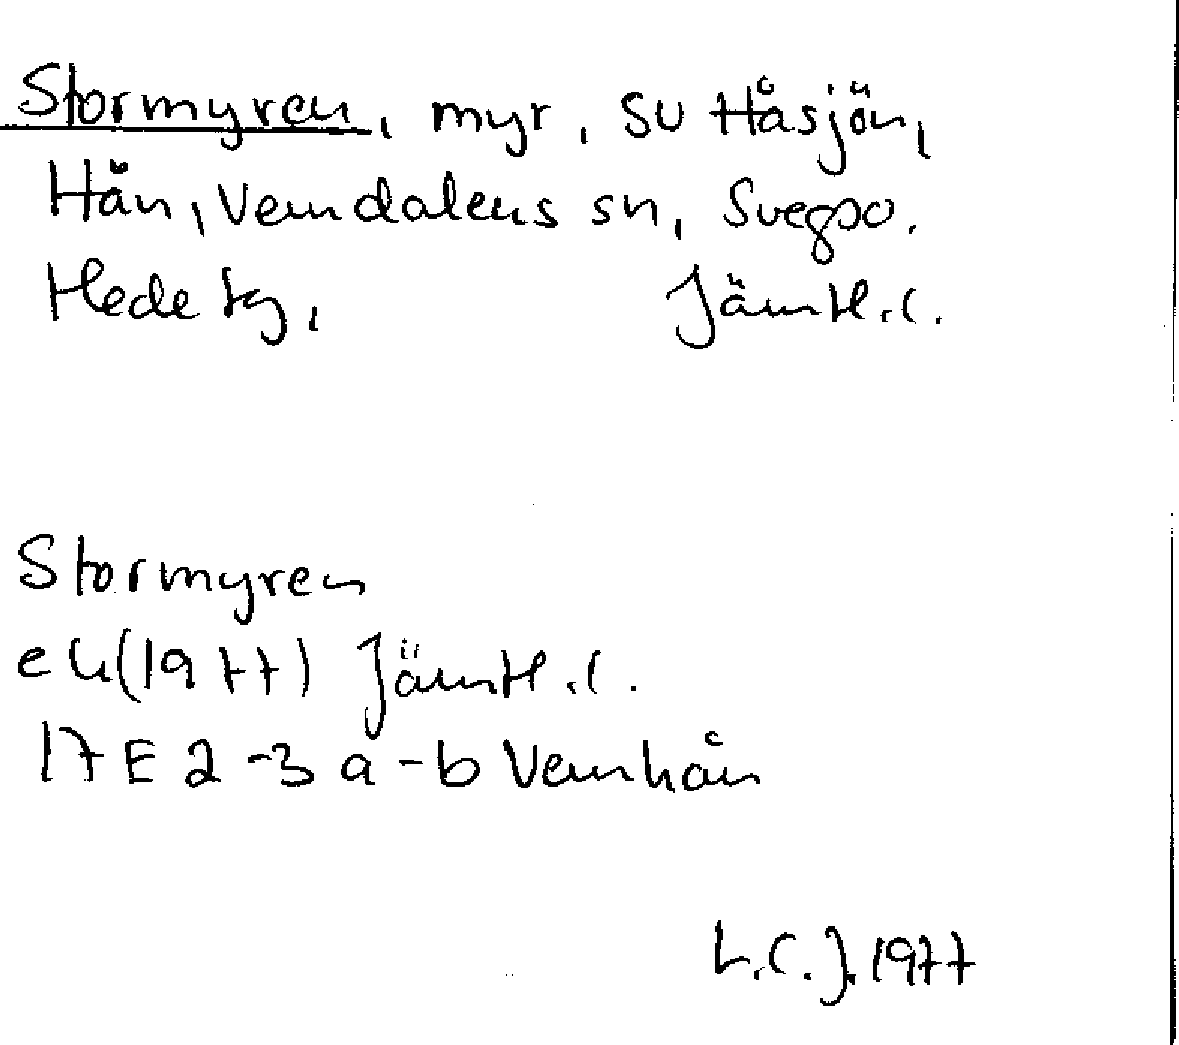 Stormyren, myr, SV Håsjön,
Hån, Vemdalens sn, Svegs po.
Hede tg, Jämtl. l.
Stormyren
ek (1977) Jämtl. l.
17E 2-3 a-b Vemhån
L.C.J. 1977